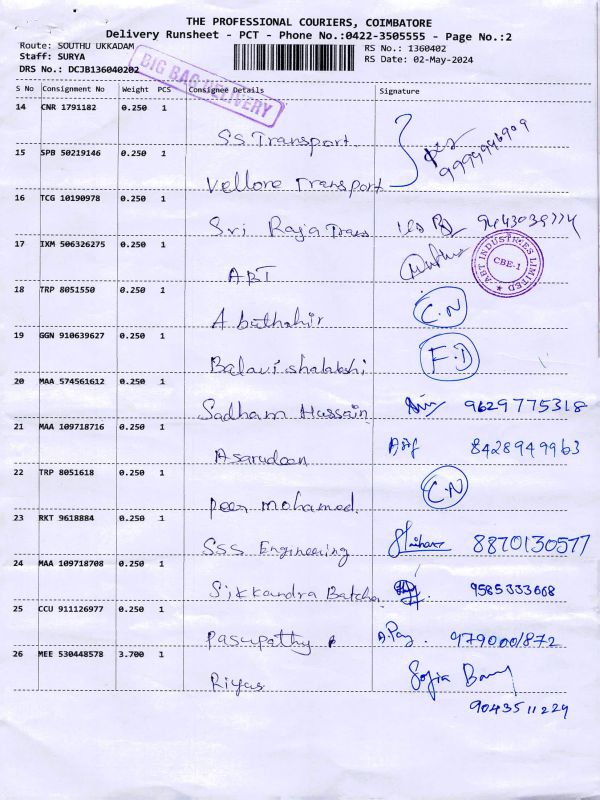 THE PROFESSIONAL COURIERS, COIMBATORE
Delivery Runsheet - PCT - Phone No.:0422-3505555 - Page No.:2
Route: SOUTHU UKKADAM
Staff: SURYA
DRS No.: DCJB136040202
RS No.: 1360402
RS Date: 02-May-2024
BIG BAG DELIVERY
S No Consignment No Weight PCS Consignee Details Signature
14 CNR 1791182 0.250 1
SS Transport
15 SPB 50219146 0.250 1
Vellore Transport
16 TCG 10190978 0.250 1
Sri Raja Trans
17 IXM 506326275 0.250 1
ABT
ABT INDUSTRIES LIMITED
CBE-1
18 TRP 8051550 0.250 1
A. buthahir C.N
19 GGN 910639627 0.250 1
Balavishalakshi F.D
20 MAA 574561612 0.250 1
Sadham Hussain 9629775318
21 MAA 109718716 0.250 1
Asarudeen 8428949963
22 TRP 8051618 0.250 1
peer mohamed. C.N
23 RKT 9618884 0.250 1
SSS Engineering 8870130577
24 MAA 109718708 0.250 1
Sikkandra Batcha 9585333668
25 CCU 911126977 0.250 1
Pasupathy 9790001872
26 MEE 530448578 3.700 1
Riyas
9043511229